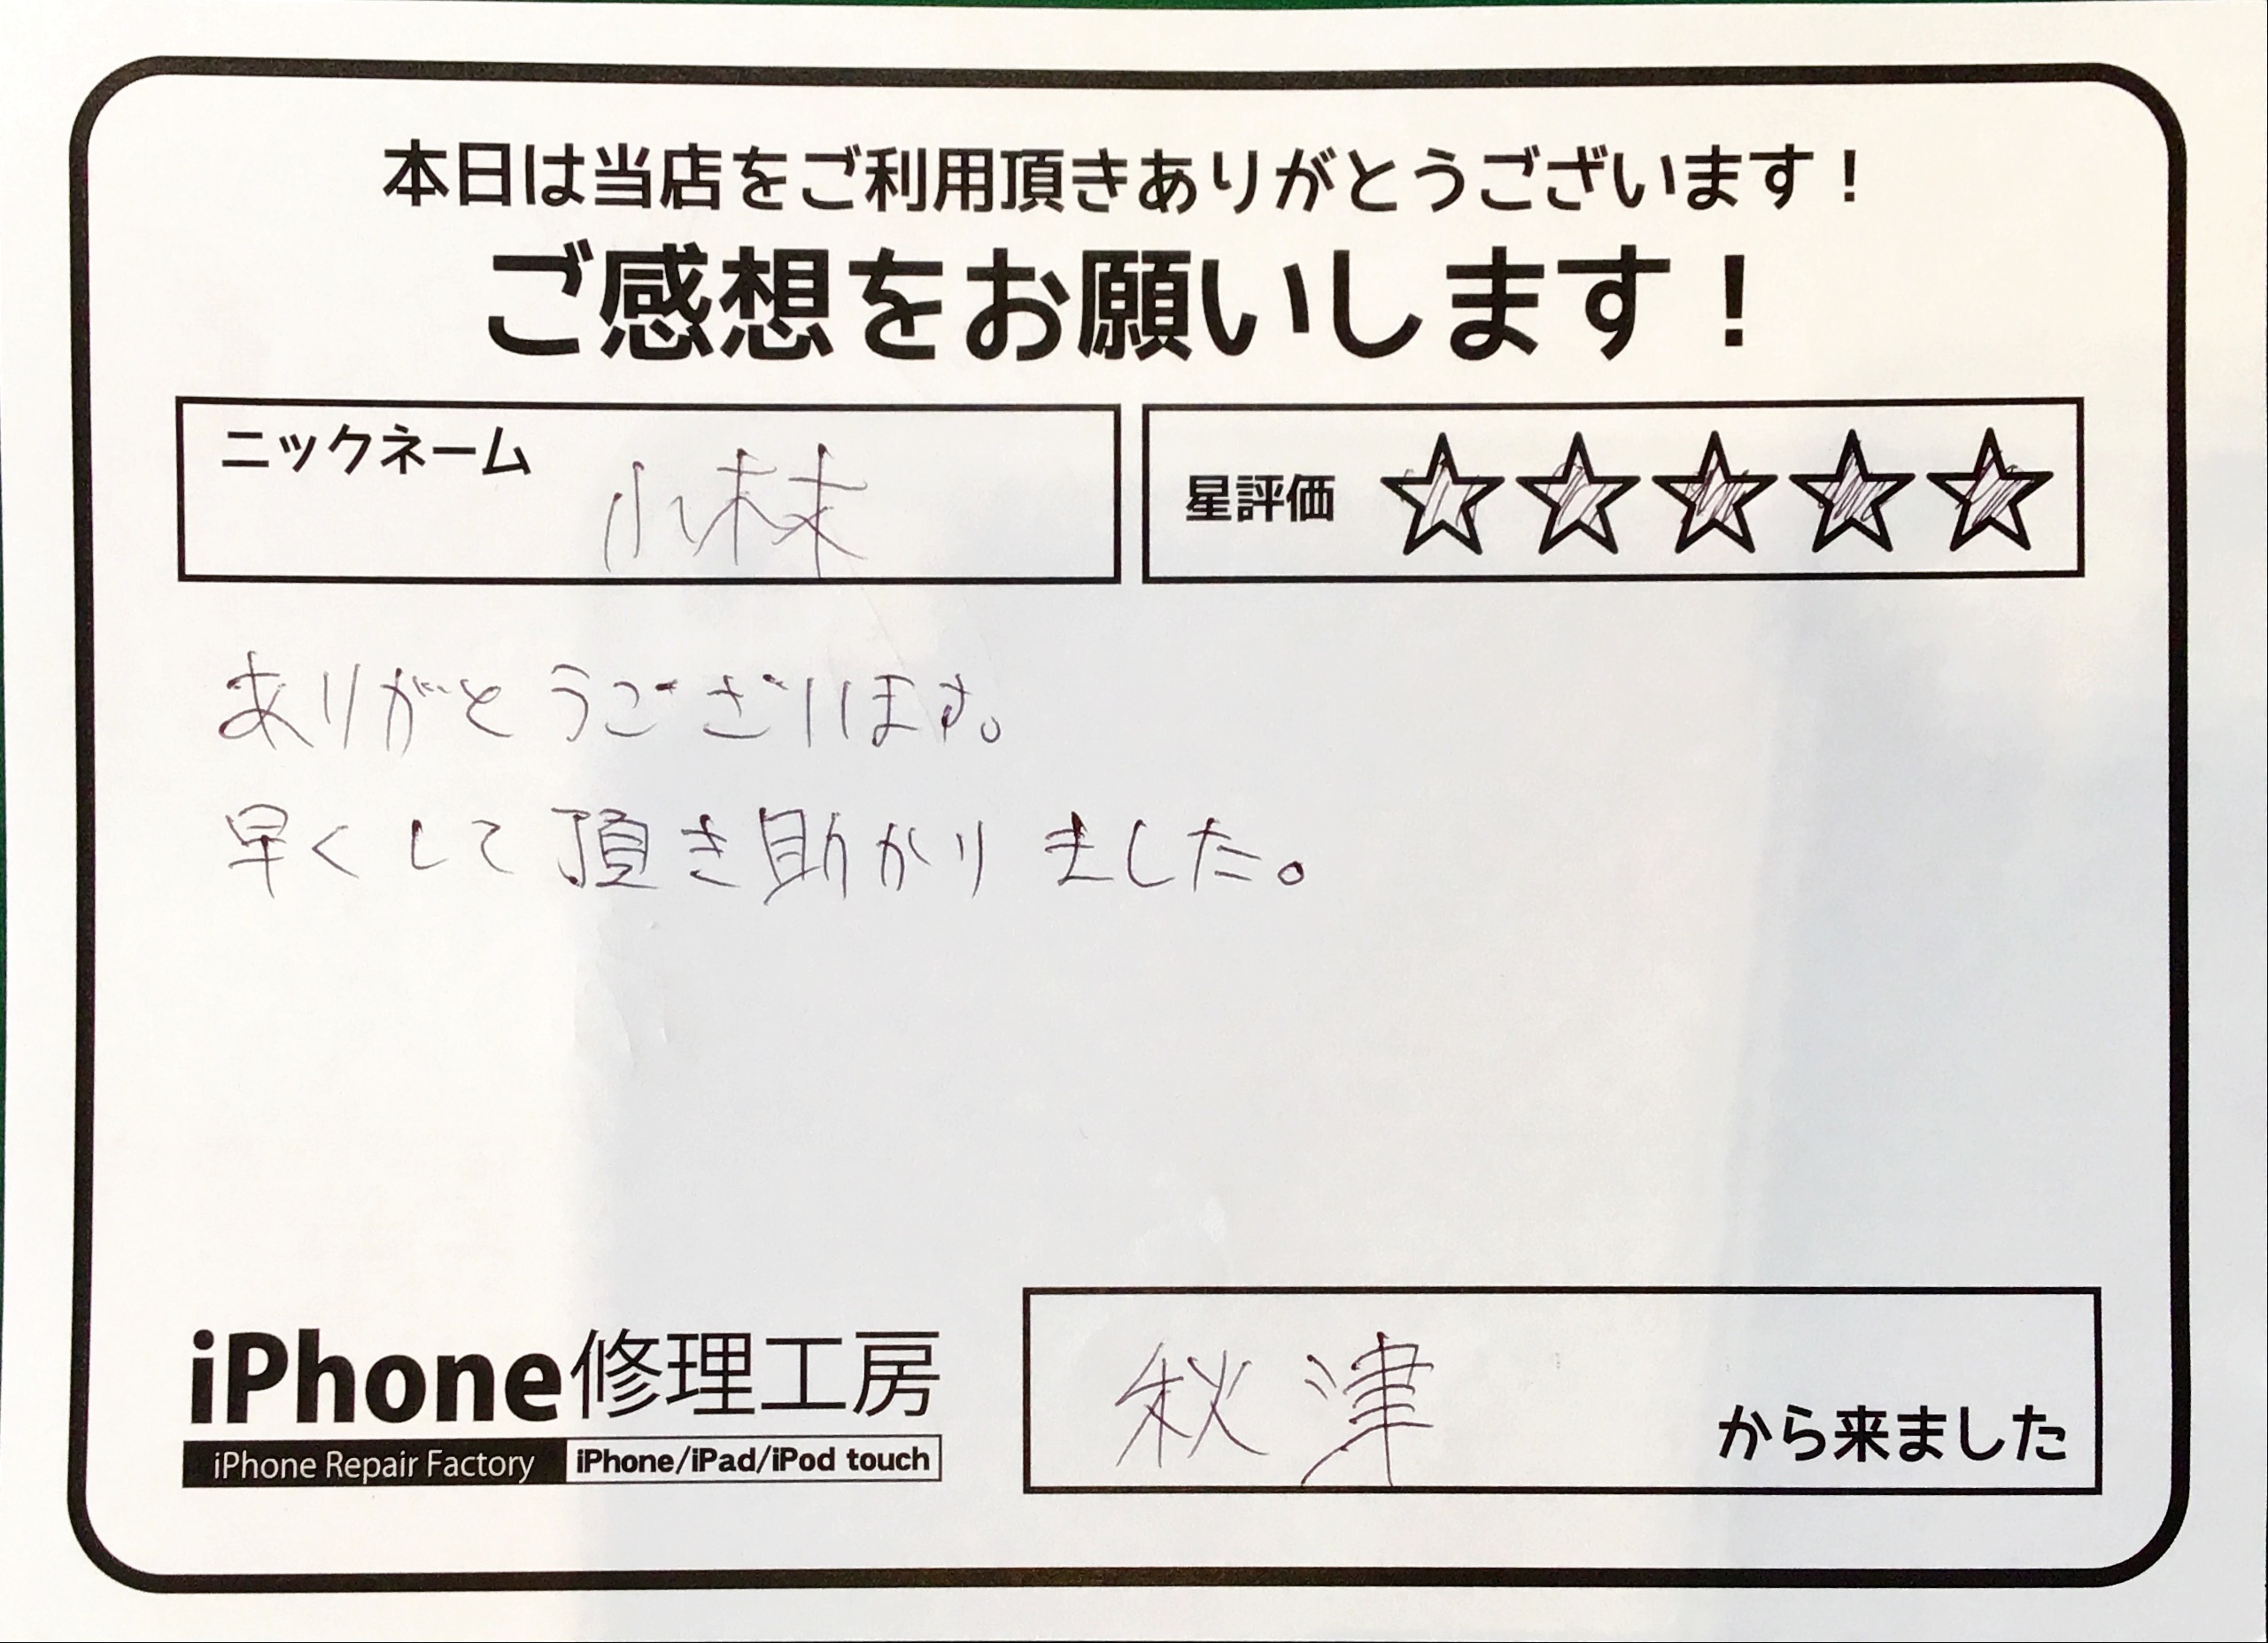 本日は当店をご利用頂きありがとうございます！
ご感想をお願いします！
ニックネーム 小林
星評価 ☆☆☆☆☆
ありがとうございます。
早くして頂き助かりました。
iPhone修理工房
iPhone Repair Factory iPhone/iPad/iPod touch
秋津 から来ました